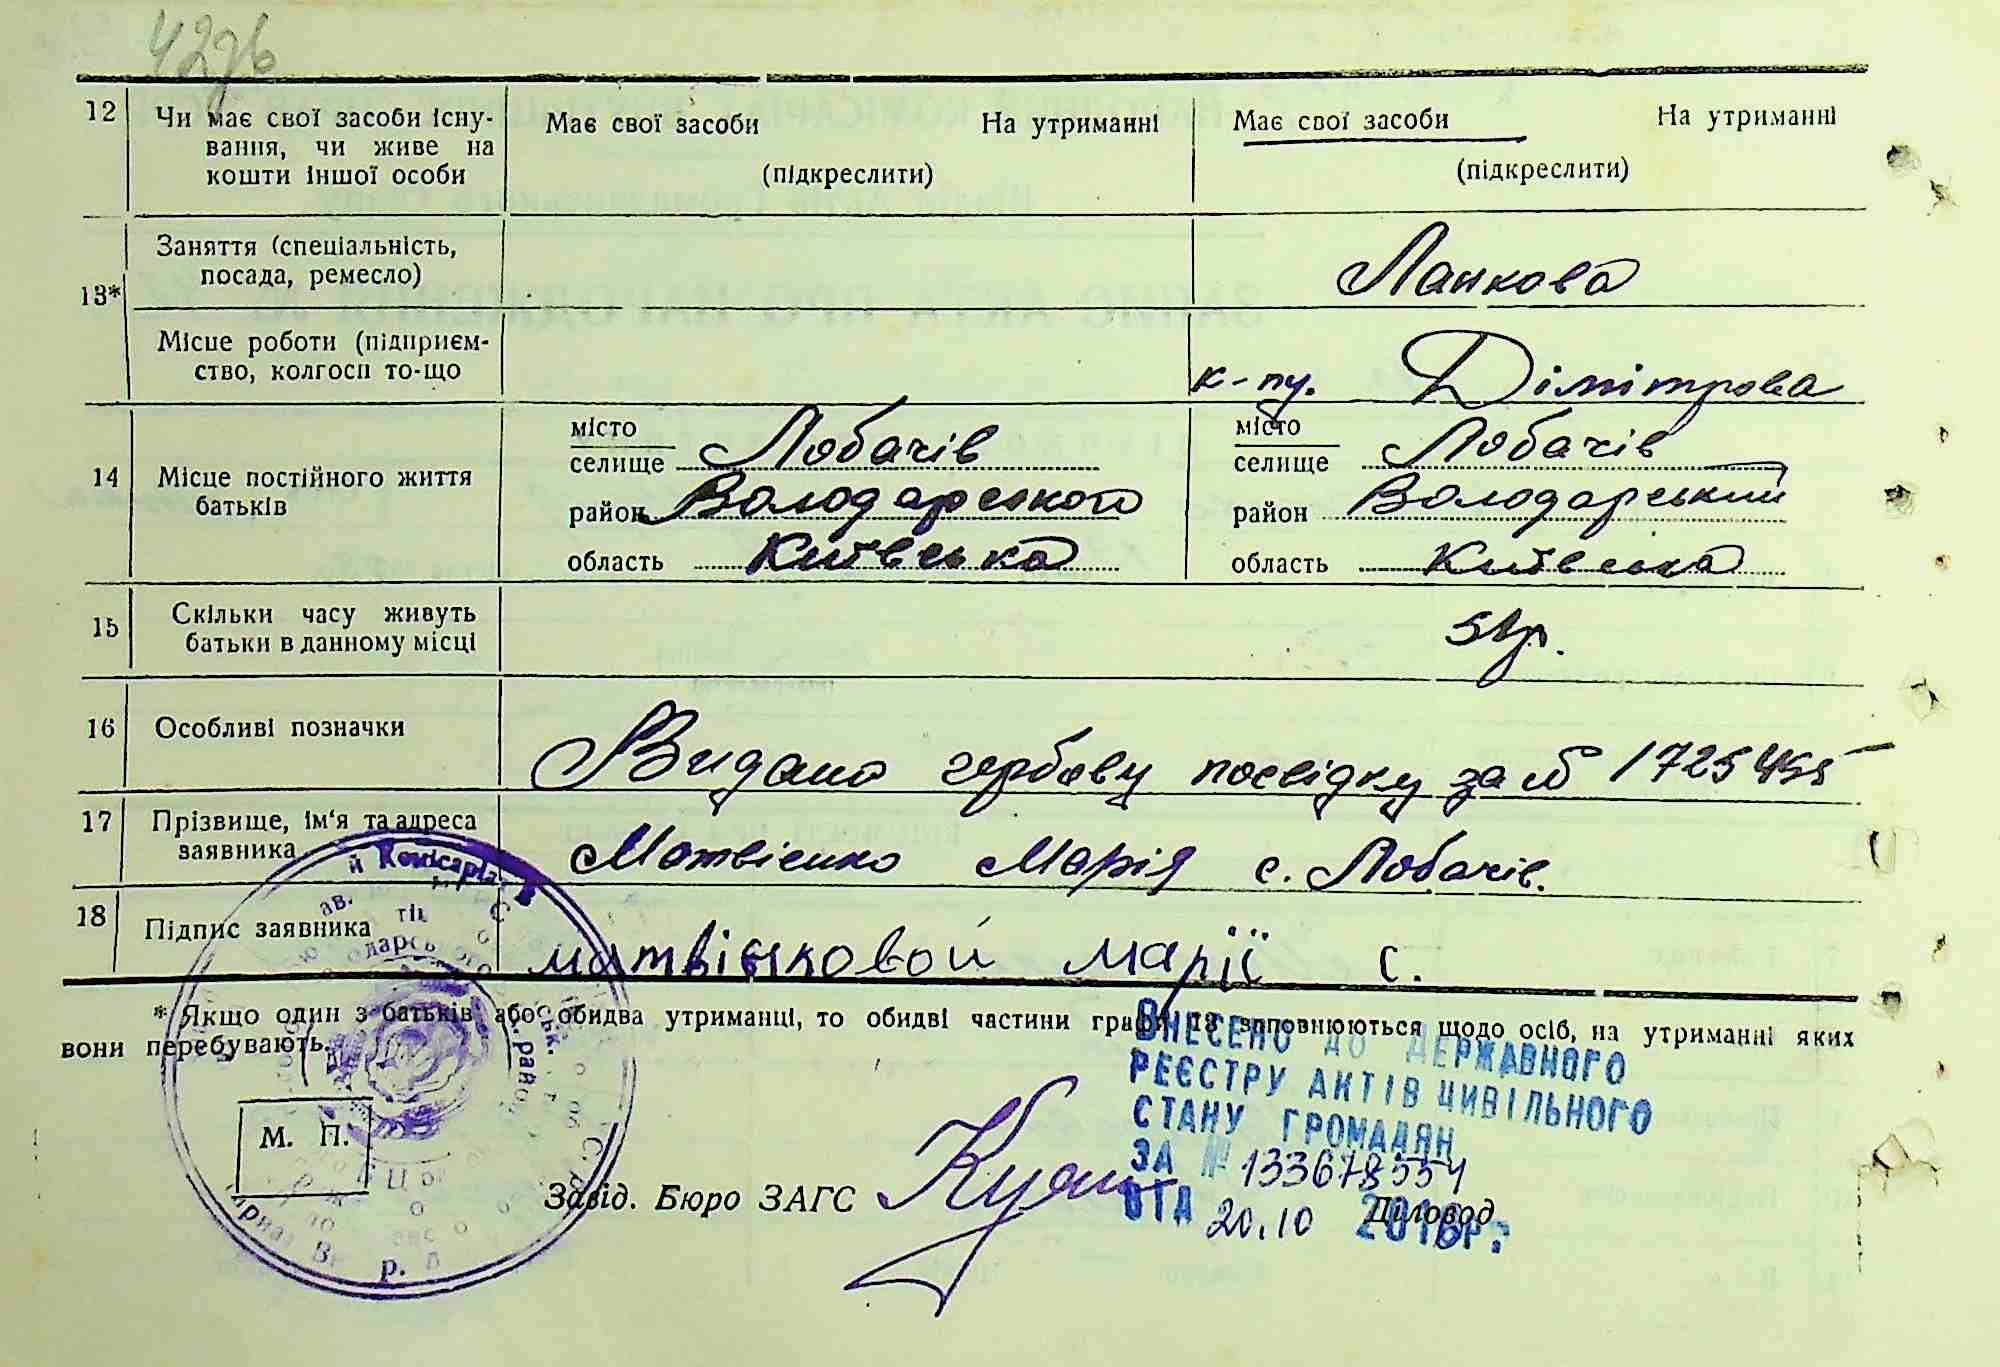 42зв
12 Чи має свої засоби існу- Має свої засоби На утриманні Має свої засоби На утриманні
вання, чи живе на
кошти іншої особи (підкреслити) (підкреслити)
Заняття (спеціальність, Ланкова
13* посада, ремесло)
Місце роботи (підприєм- к-пу. Дімітрова
ство, колгосп то-що
місто місто
14 Місце постійного життя селище Лобачів селище Лобачів
батьків район Володарського район Володарський
область Київська область Київська
15 Скільки часу живуть 5 1р.
батьки в данному місці
16 Особливі позначки Видано гербову посвідку за № 1725455
17 Прізвище, ім'я та адреса Матвієнко Марія с. Лобачів.
заявника
18 Підпис заявника матвієнковой марії с.
* Якщо один з батьків або обидва утриманці, то обидві частини графи 13 заповнюються щодо осіб, на утриманні яких
вони перебувають.
ВНЕСЕНО ДО ДЕРЖАВНОГО
РЕЄСТРУ АКТІВ ЦИВІЛЬНОГО
СТАНУ ГРОМАДЯН
ЗА № 133678554
М. П.
Завід. Бюро ЗАГС Діловод
ВІД 20.10 2016р.
й Комісаріат В